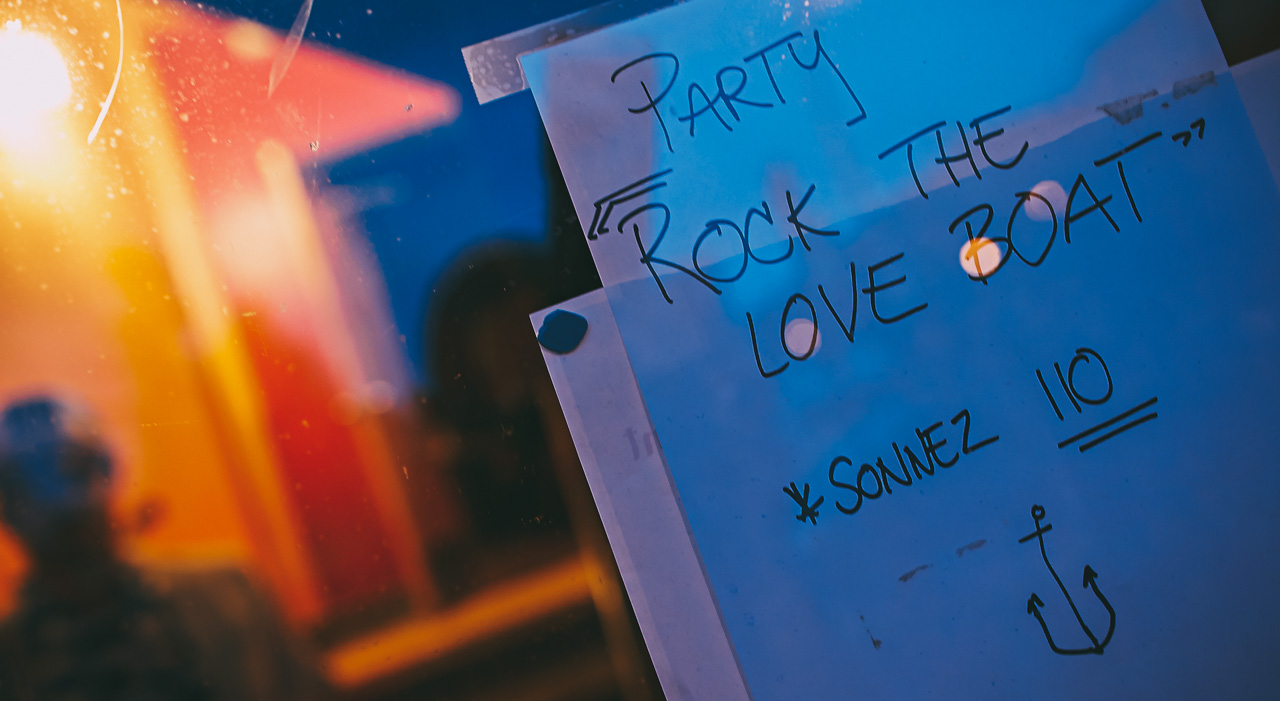 PARTY
"ROCK THE
LOVE BOAT"
*SONNEZ 110